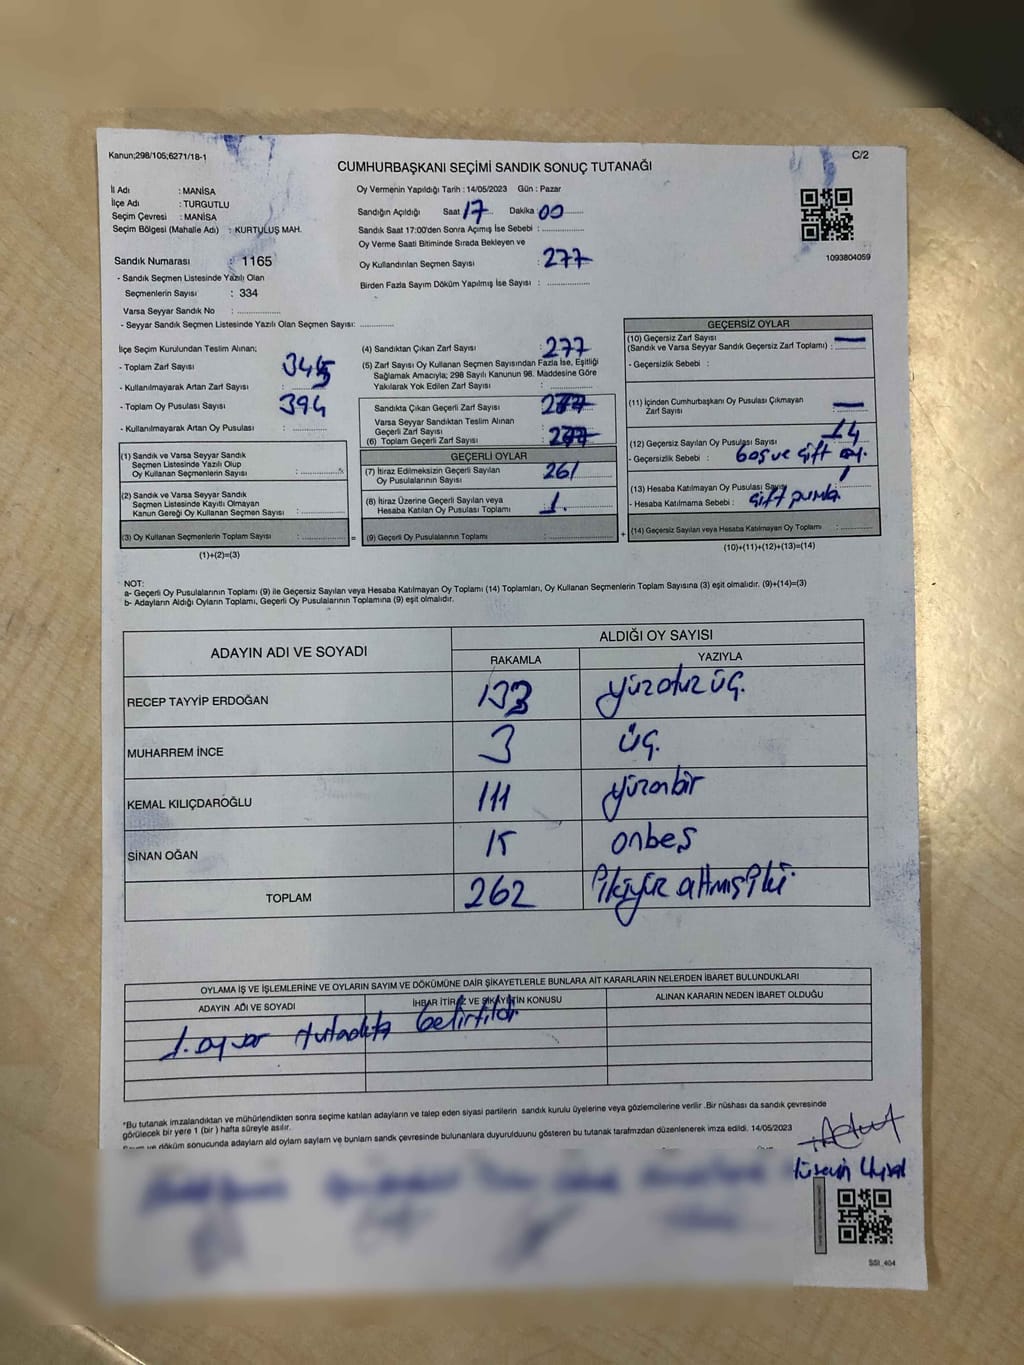 Kanun;298/105;6271/18-1
C/2
CUMHURBAŞKANI SEÇİMİ SANDIK SONUÇ TUTANAĞI
İl Adı : MANİSA
İlçe Adı : TURGUTLU
Seçim Çevresi : MANİSA
Seçim Bölgesi (Mahalle Adı) : KURTULUŞ MAH.
Sandık Numarası : 1165
- Sandık Seçmen Listesinde Yazılı Olan
Seçmenlerin Sayısı : 334
Varsa Seyyar Sandık No :
- Seyyar Sandık Seçmen Listesinde Yazılı Olan Seçmen Sayısı:
Oy Vermenin Yapıldığı Tarih : 14/05/2023 Gün : Pazar
Sandığın Açıldığı Saat 17 Dakika 00
Sandık Saat 17:00'den Sonra Açımış İse Sebebi :
Oy Verme Saati Bitiminde Sırada Bekleyen ve
Oy Kullandırılan Seçmen Sayısı : 277
Birden Fazla Sayım Döküm Yapılmış İse Sayısı :
1093804059
İlçe Seçim Kurulundan Teslim Alınan;
- Toplam Zarf Sayısı : 345
- Kullanılmayarak Artan Zarf Sayısı :
- Toplam Oy Pusulası Sayısı 394
- Kullanılmayarak Artan Oy Pusulası :
(1) Sandık ve Varsa Seyyar Sandık
Seçmen Listesinde Yazılı Olup
Oy Kullanan Seçmenlerin Sayısı :
(2) Sandık ve Varsa Seyyar Sandık
Seçmen Listesinde Kayıtlı Olmayan
Kanun Gereği Oy Kullanan Seçmen Sayısı :
(3) Oy Kullanan Seçmenlerin Toplam Sayısı : =
(1)+(2)=(3)
(4) Sandıktan Çıkan Zarf Sayısı : 277
(5) Zarf Sayısı Oy Kullanan Seçmen Sayısından Fazla İse, Eşitliği
Sağlamak Amacıyla; 298 Sayılı Kanunun 98. Maddesine Göre
Yakılarak Yok Edilen Zarf Sayısı :
Sandıkta Çıkan Geçerli Zarf Sayısı 277
Varsa Seyyar Sandıktan Teslim Alınan
Geçerli Zarf Sayısı
(6) Toplam Geçerli Zarf Sayısı : 277
GEÇERLİ OYLAR
(7) İtiraz Edilmeksizin Geçerli Sayılan
Oy Pusulalarının Sayısı 261
(8) İtiraz Üzerine Geçerli Sayılan veya
Hesaba Katılan Oy Pusulası Toplamı : 1.
(9) Geçerli Oy Pusulalarının Toplamı : +
GEÇERSİZ OYLAR
(10) Geçersiz Zarf Sayısı
(Sandık ve Varsa Seyyar Sandık Geçersiz Zarf Toplamı) : —
- Geçersizlik Sebebi :
(11) İçinden Cumhurbaşkanı Oy Pusulası Çıkmayan
Zarf Sayısı : —
(12) Geçersiz Sayılan Oy Pusulası Sayısı 14
- Geçersizlik Sebebi : boş ve çift oy.
(13) Hesaba Katılmayan Oy Pusulası Sayısı 1
- Hesaba Katılmama Sebebi : çift pusula
(14) Geçersiz Sayılan veya Hesaba Katılmayan Oy Toplamı :
(10)+(11)+(12)+(13)=(14)
NOT:
a- Geçerli Oy Pusulalarının Toplamı (9) ile Geçersiz Sayılan veya Hesaba Katılmayan Oy Toplamı (14) Toplamları, Oy Kullanan Seçmenlerin Toplam Sayısına (3) eşit olmalıdır. (9)+(14)=(3)
b- Adayların Aldığı Oyların Toplamı, Geçerli Oy Pusulalarının Toplamına (9) eşit olmalıdır.
ADAYIN ADI VE SOYADI
ALDIĞI OY SAYISI
RAKAMLA YAZIYLA
RECEP TAYYİP ERDOĞAN 133 yüzotuzüç.
MUHARREM İNCE 3 üç.
KEMAL KILIÇDAROĞLU 111 yüzonbir
SİNAN OĞAN 15 onbeş
TOPLAM 262 ikiyüz altmışiki
OYLAMA İŞ VE İŞLEMLERİNE VE OYLARIN SAYIM VE DÖKÜMÜNE DAİR ŞİKAYETLERLE BUNLARA AİT KARARLARIN NELERDEN İBARET BULUNDUKLARI
ADAYIN ADI VE SOYADI İHBAR İTİRAZ VE ŞİKAYETİN KONUSU ALINAN KARARIN NEDEN İBARET OLDUĞU
1. oy var tutanakta belirtildi
*Bu tutanak imzalandıktan ve mühürlendikten sonra seçime katılan adayların ve talep eden siyasi partilerin sandık kurulu üyelerine veya gözlemcilerine verilir .Bir nüshası da sandık çevresinde
görülecek bir yere 1 (bir ) hafta süreyle asılır.
ve döküm sonucunda adayların ald oyların sayların ve bunlarn sandk çevresinde bulunanlara duyurulduunu gösteren bu tutanak tarafmzdan düzenlenerek imza edildi. 14/05/2023
Hüseyin Uysal
SSI_404